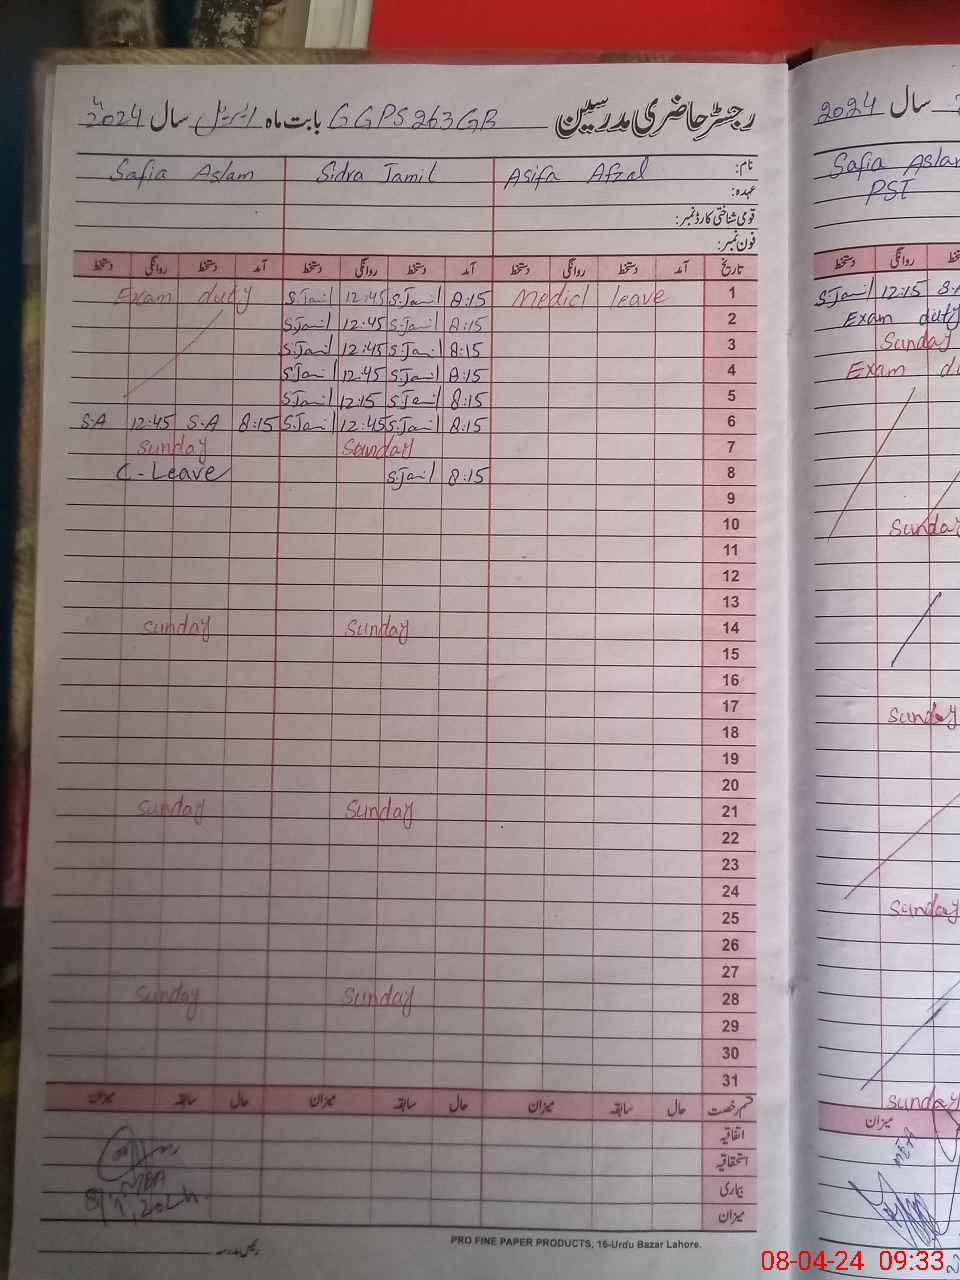 رجسٹر حاضری مدرسین GGPS 263 GB بابت ماہ اپریل سال 2024
نام: Asifa Afzal Sidra Jamil Safia Aslam
عہدہ:
قومی شناختی کارڈ نمبر:
فون نمبر:
تاریخ آمد دستخط روانگی دستخط آمد دستخط روانگی دستخط آمد دستخط روانگی دستخط
Exam duty S.Jamil 12:45 S.Jamil 8:15 Medicl leave 1
S.Jamil 12:45 S.Jamil 8:15 2
S.Jamil 12:45 S.Jamil 8:15 3
S.Jamil 12:45 S.Jamil 8:15 4
S.Jamil 12:15 S.Jamil 8:15 5
S.A 12:45 S.A 8:15 S.Jamil 12:45 S.Jamil 8:15 6
Sunday Sunday 7
C-Leave S.Jamil 8:15 8
9
10
11
12
13
Sunday Sunday 14
15
16
17
18
19
20
Sunday Sunday 21
22
23
24
25
26
27
Sunday Sunday 28
29
30
31
قسم رخصت حال سابقہ میزان حال سابقہ میزان حال سابقہ میزان
اتفاقیہ
استحقاقیہ
بیماری
میزان
رئیس مدرسہ
PRO FINE PAPER PRODUCTS, 16-Urdu Bazar Lahore.
سال 2024
Safia Aslam
PST
دستخط روانگی
S.Jamil 12:15 S.A
Exam duty
Sunday
Exam
Sunday
Sunday
Sunday
Sunday
میزان
08-04-24 09:33